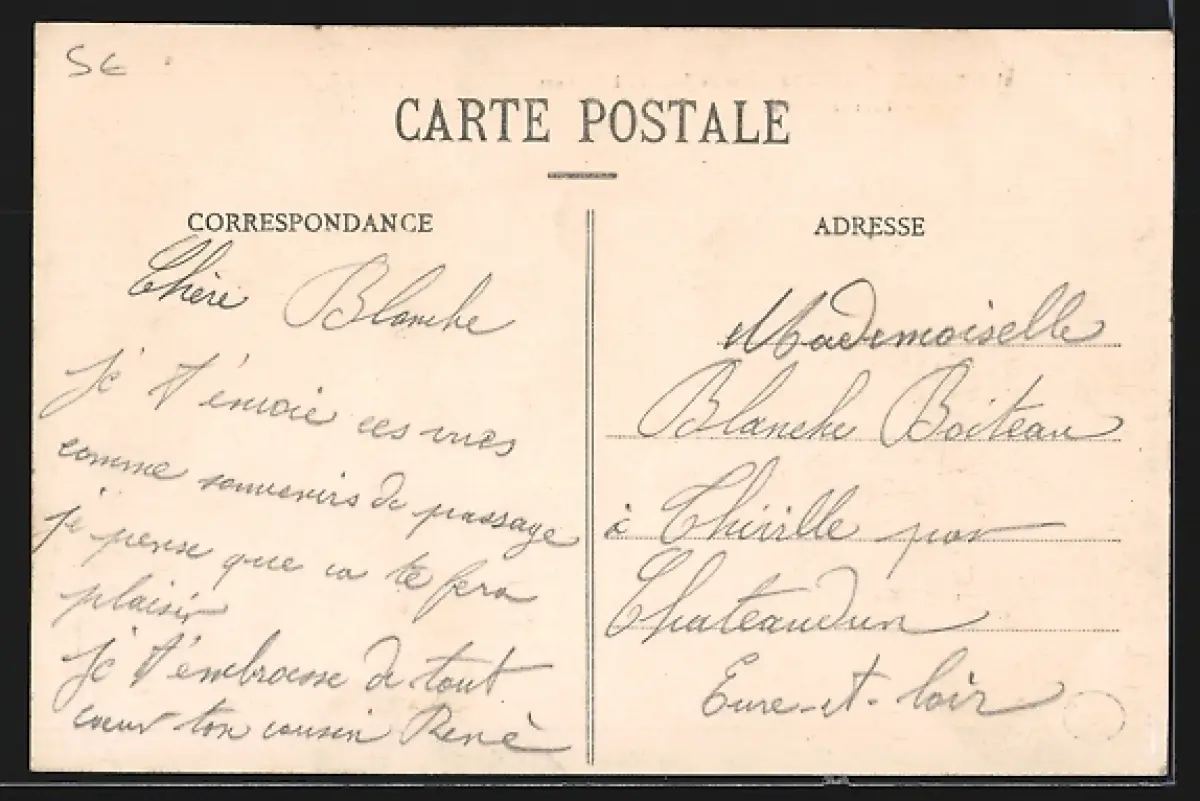 5€
CARTE POSTALE
CORRESPONDANCE
Chère Blanche
je t'envoie ces vues
comme souvenirs de passage
je pense que ca te fera
plaisir
je t'embrasse de tout
coeur ton cousin René
ADRESSE
Mademoiselle
Blanche Boiteau
à Thiville par
Chateaudun
Eure-et-loir